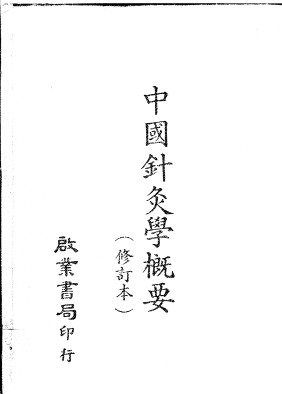 中國針灸學概要
（修訂本）
啟業書局印行